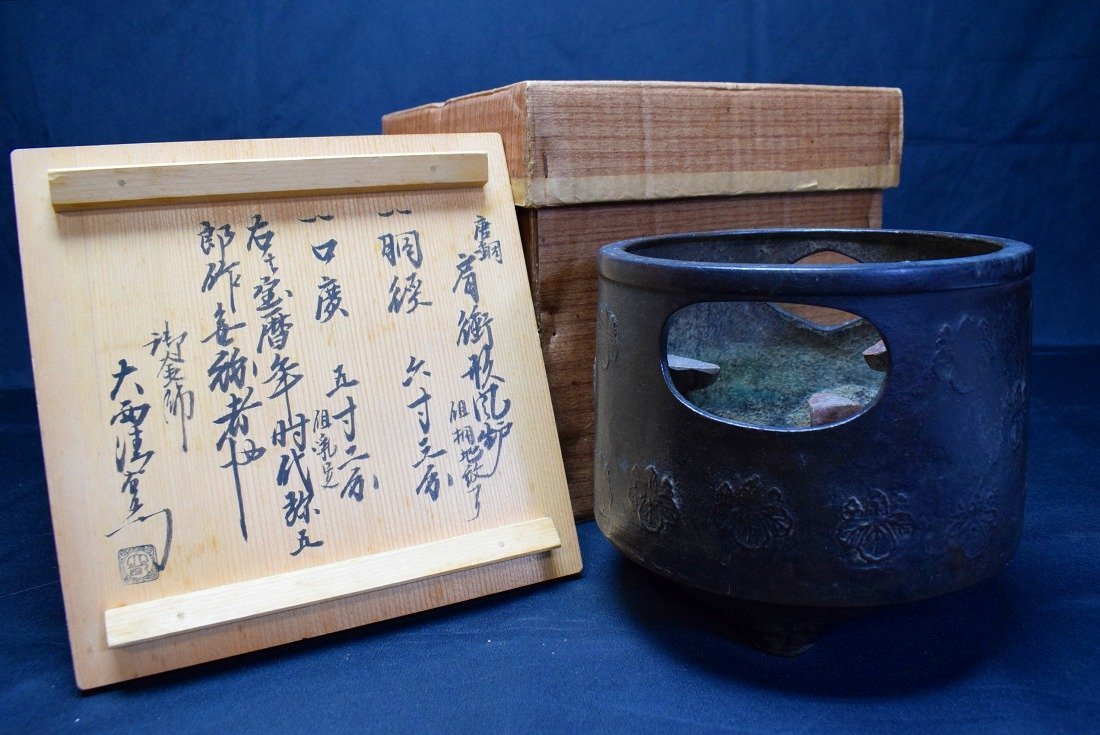 唐銅 肩衝形風炉 但桐地紋有
一 胴径 六寸三分
一 口廣 五寸二分 但乳足
右者宝暦年時代弥五
郎作無疑者也
御釜師
大西清右衛門